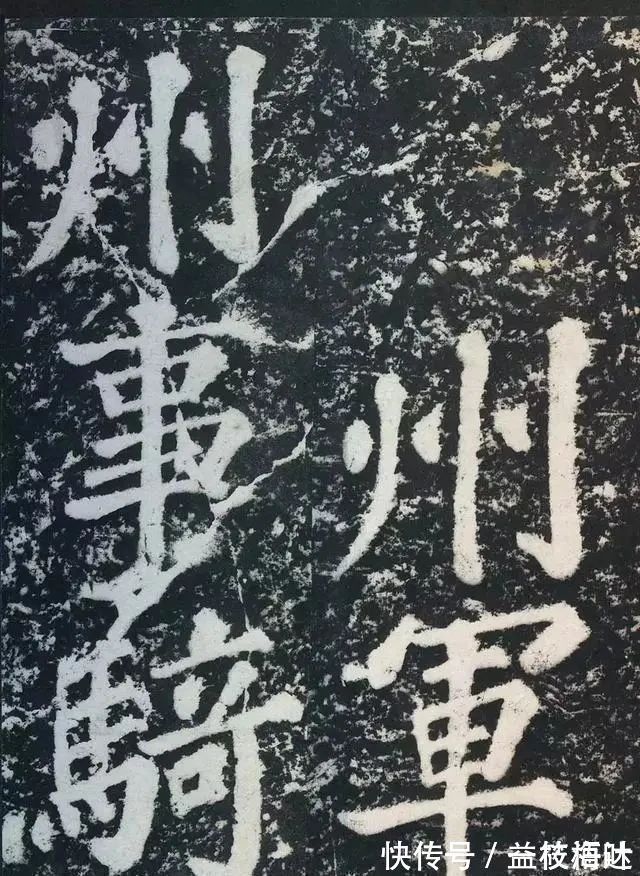 州軍
州事騎
快传号／益枝梅哒